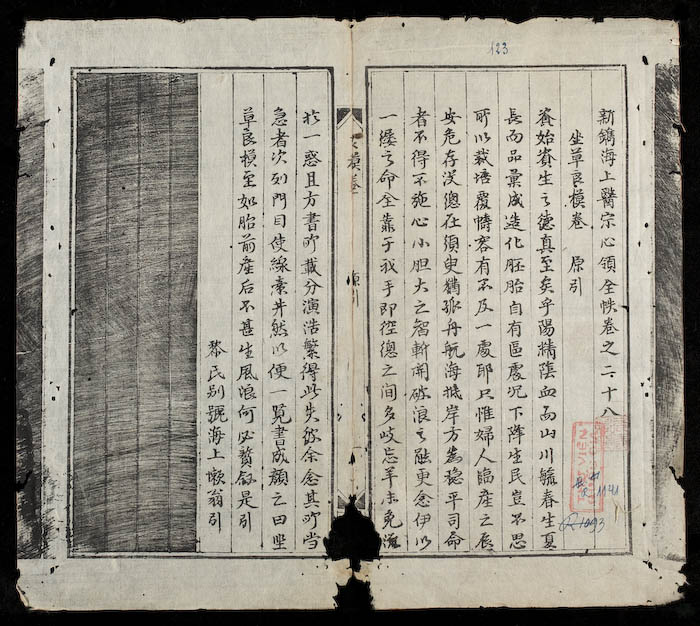 123
新鐫海上醫宗心領全帙卷之二十八
坐草良模卷 原引
資始資生之德真至矣乎陽精陰血而山川毓春生夏
長而品彙成造化胚胎自有區處况下降生民豈不思
所以栽培覆幬容有不及一處耶只惟婦人臨產之辰
安危存沒總在須臾猶孤舟航海抵岸方為穩平司命
者不得不施心小胆大之智斬開破浪之融更愈伊以
一縷之命全靠于我手即徑總之間多岐忘羊未免滋
於一惑且方書所載分演浩繁得此失彼余愈其所當
急者次列門目使線索井然以便一覧書成顏之曰坐
草良模至如胎前產后不甚生風浪何必贅叙是引
黎氏別號海上懶翁引
模卷
原引
1141
1093